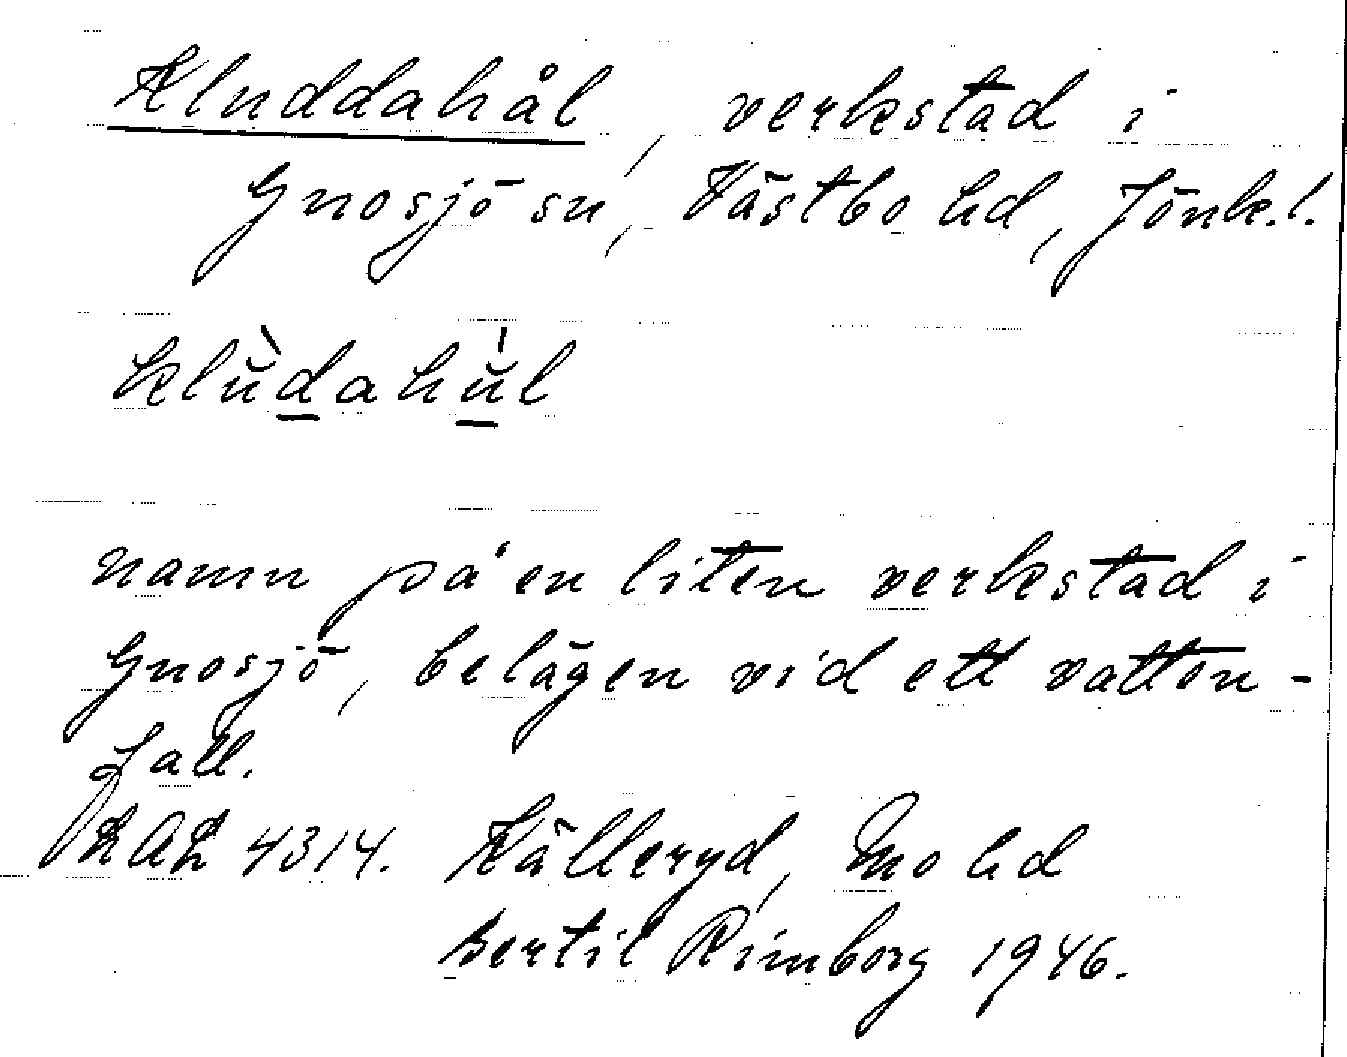 Kluddahål, verkstad i
Gnosjö sn, Västbo hd, Jönk.l.
klŭ̀dahŭ̀l
namn på en liten verkstad i
Gnosjö, belägen vid ett vatten-
fall.
4314. Källeryd, Mo hd
Bertil Rimborg 1946.